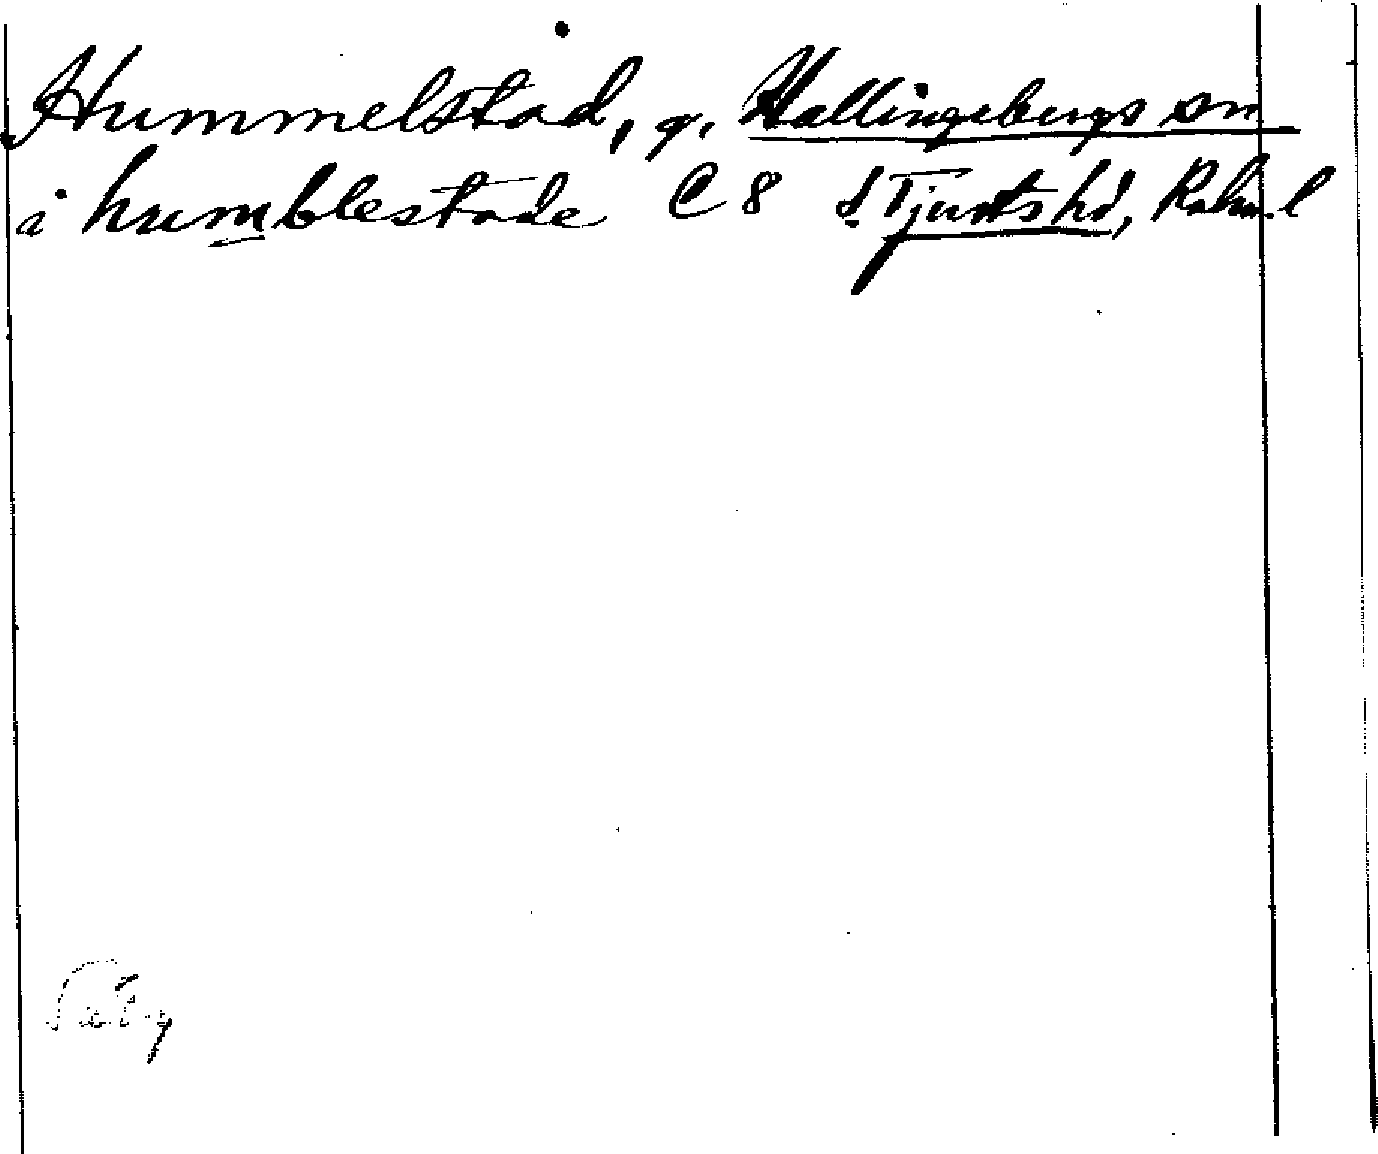 Hummelstad, g. Hallingebergs sn
i humblestade C 8 S. Tjusts hd, Kalm. l